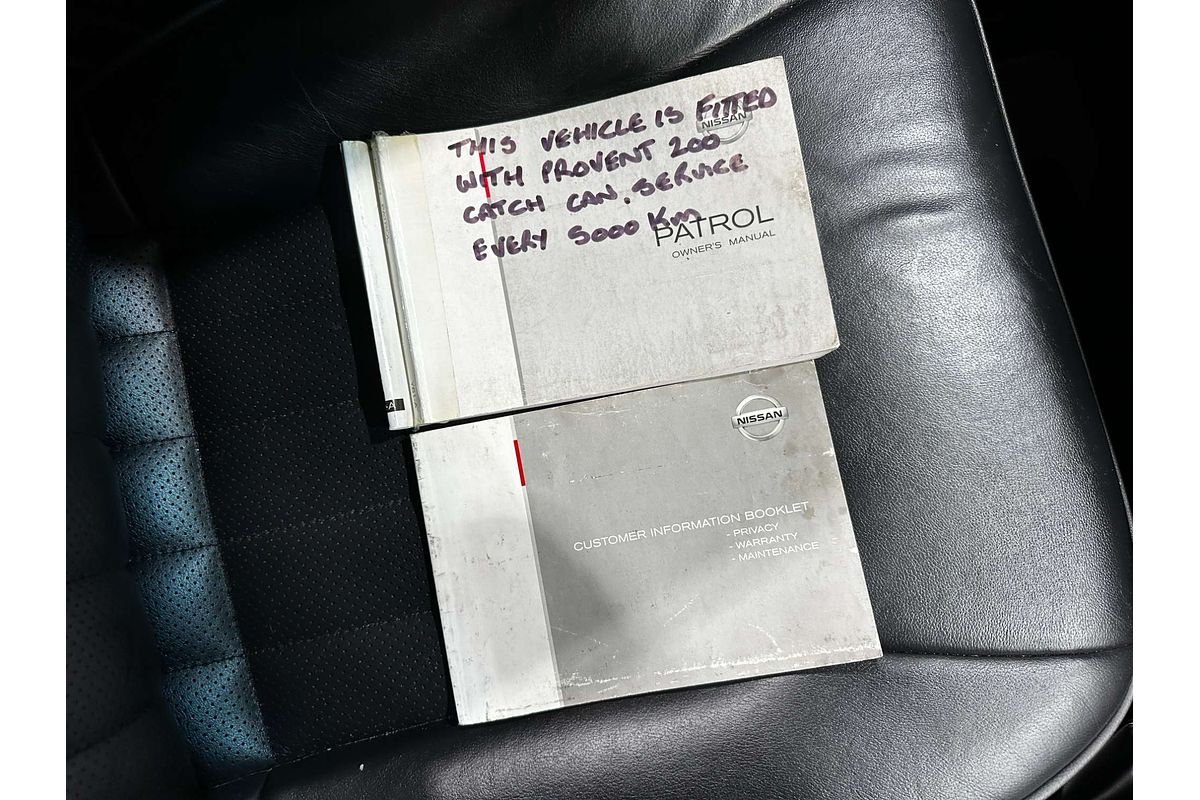 THIS VEHICLE IS FITTED
WITH PROVENT 200
CATCH CAN. SERVICE
EVERY 5000 Km
NISSAN
PATROL
OWNER'S MANUAL
NISSAN
CUSTOMER INFORMATION BOOKLET
- PRIVACY
- WARRANTY
- MAINTENANCE